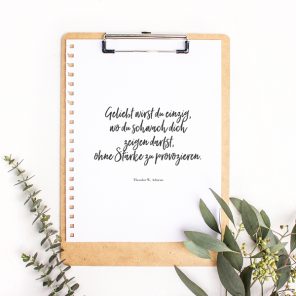 Geliebt wirst du einzig,
wo du schwach dich
zeigen darfst,
ohne Stärke zu provozieren.
Theodor W. Adorno